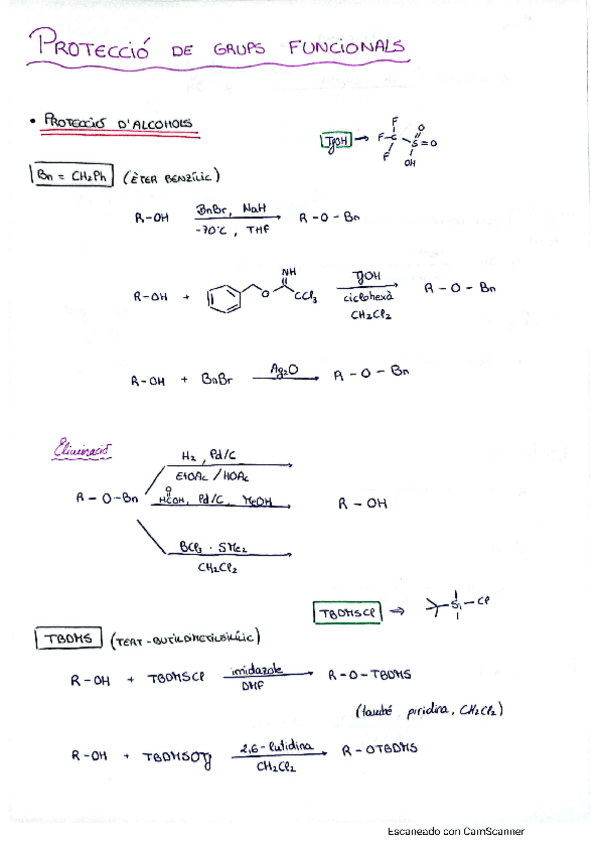 PROTECCIÓ DE GRUPS FUNCIONALS
• PROTECCIÓ D'ALCOHOLS
TfOH → F F F C S O =O OH
Bn = CH2Ph (ÈTER BENZÍLIC)
R-OH BnBr, NaH R-O-Bn
-70°C, THF
R-OH + O NH CCl3 TfOH R-O-Bn
ciclohexà
CH2Cl2
R-OH + BnBr Ag2O R-O-Bn
Eliminació
H2, Pd/C
EtOAc / HOAc
R-O-Bn HCOH, Pd/C, MeOH R-OH
O
BCl3 · SMe2
CH2Cl2
TBDMSCl ⇒ Si-Cl
TBDMS (TERT-BUTILDIMETILSILÍLIC)
R-OH + TBDMSCl imidazole R-O-TBDMS
DMF
(també piridina, CH2Cl2)
R-OH + TBDMSOTf 2,6-lutidina R-OTBDMS
CH2Cl2
Escaneado con CamScanner